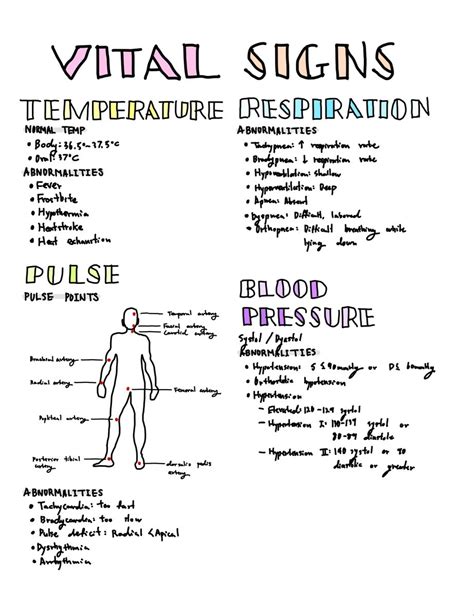 VITAL SIGNS
TEMPERATURE
NORMAL TEMP
• Body: 36.5°-37.5°C
• Oral: 37°C
ABNORMALITIES
• Fever
• Frostbite
• Hypothermia
• Heatstroke
• Heat exhaustion
RESPIRATION
ABNORMALITIES
• Tachypnea: ↑ respiration rate
• Bradypnea: ↓ respiration rate
• Hypoventilation: Shallow
• Hyperventilation: Deep
• Apnea: Absent
• Dyspnea: Difficult, labored
• Orthopnea: Difficult breathing while
lying down
PULSE
PULSE POINTS
Temporal artery
Facial artery
Carotid artery
Brachial artery
Radial artery
Femoral artery
artery
Posterior tibial
artery
dorsalis pedis
artery
ABNORMALITIES
• Tachycardia: too fast
• Bradycardia: too slow
• Pulse deficit: Radial < Apical
• Dysrhythmia
• Arrhythmia
BLOOD
PRESSURE
Systol / Dyastol
ABNORMALITIES
• Hypotension: S ≤ 90mmHg or D ≤ 60mmHg
• hypotension
• Hypertension
- Elevated: 120-129 systol
- Hypertension I: systol or
80-89 diastole
- Hypertension II: 140 systol or 90
diastole or greater